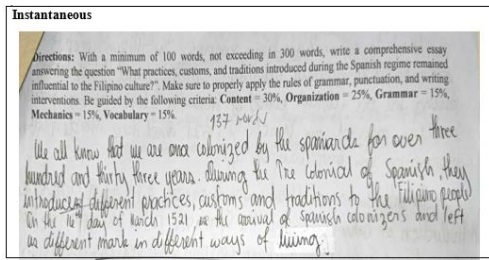 Instantaneous
Directions: With a minimum of 100 words, not exceeding in 300 words, write a comprehensive essay
answering the question "What practices, customs, and traditions introduced during the Spanish regime remained
influential to the Filipino culture?". Make sure to properly apply the rules of grammar, punctuation, and writing
interventions. Be guided by the following criteria: Content = 30%, Organization = 25%, Grammar = 15%,
Mechanics = 15%, Vocabulary = 15%.
137 words
We all know that we are once colonized by the spaniards for over three
hundred and thirty three years. during the Pre Colonical of Spanish, they
introduced different practices, customs and traditions to the Filipino people
On the 16th day of March 1521 is the arrival of Spanish colonizers and left
us different mark in different ways of living.